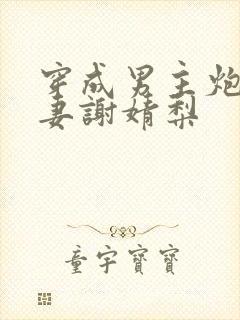 穿成男主炮
妻謝婧梨
童宇寶寶